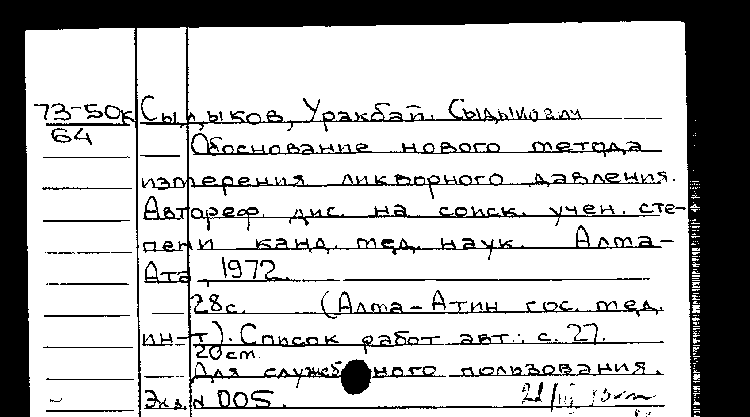 73-50к Сыдыков, Уракбай Сыдыкович
64
Обоснование нового метода
измерения ликворного давления.
Автореф. дис. на соиск. учен. сте-
пени канд. мед. наук. Алма-
Ата, 1972.
28с. (Алма-Атин гос. мед.
ин-т). Список работ авт.: с. 27.
20см.
Для служебного пользования.
Экз. № 005.